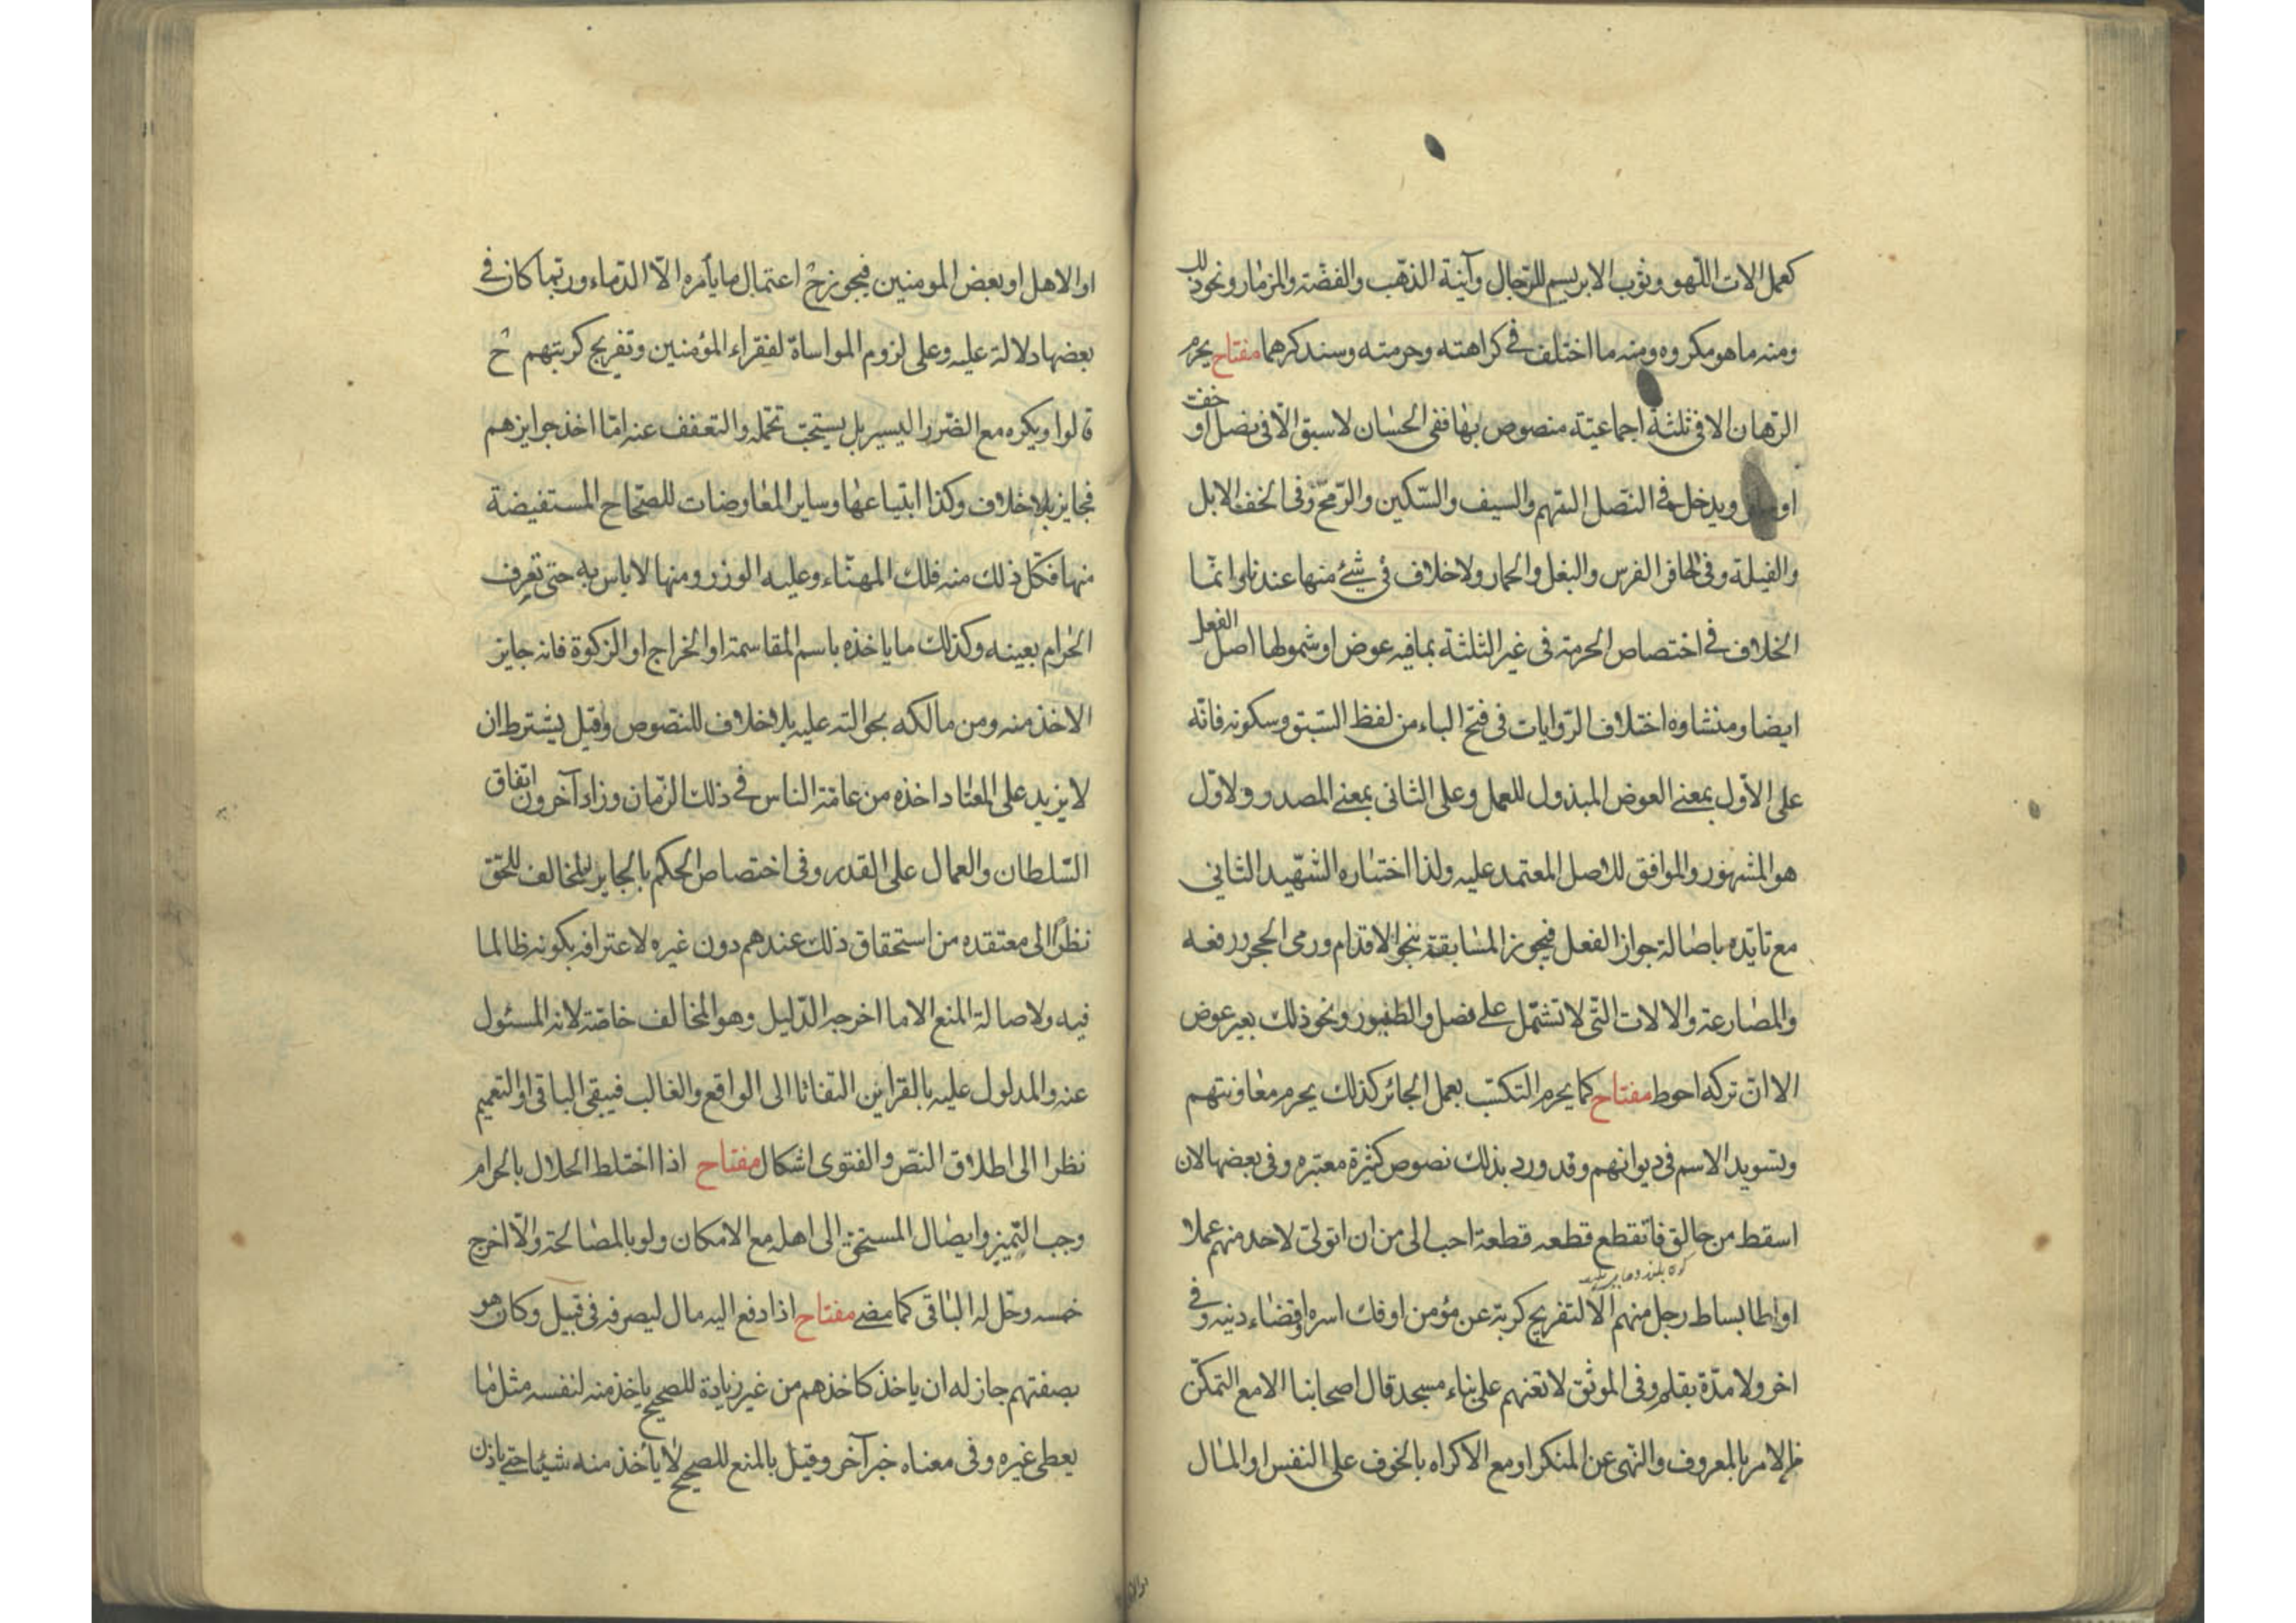 كعمل الات اللهو وثوب الابريسم للرجال وآنية الذهب والفضة والمزمار ونحو ذلك
ومنه ما هو مكروه ومنه ما اختلف في كراهته وحرمته وسنذكرهما مفتاح يحرم
الرهان الا في ثلثة اجماعية منصوص بها ففي الحسان لا سبق الا في نصل او خف
او ويدخل في النصل السهم والسيف والسكين والرمح وفي الخف الابل
والفيلة وفي الحافر الفرس والبغل والحمار ولا خلاف في شيء منها عندنا وانما
الخلاف في اختصاص الحرمة في غير الثلثة بما فيه عوض او شمولها اصل الفعل
ايضا ومنشاوه اختلاف الروايات في فتح الباء من لفظ السبق وسكونه فانه
على الاول بمعنى العوض المبذول للعمل وعلى الثاني بمعنى المصدر والاول
هو المشهور والموافق للاصل المعتمد عليه ولذا اختاره الشهيد الثاني
مع تايده باصالة جواز الفعل فيجوز المسابقة بنحو الاقدام ورمي الحجر ورفعه
والمصارعة والالات التي لا تشتمل على نصل والطيور ونحو ذلك بغير عوض
الا ان تركه احوط مفتاح كما يحرم التكسب بعمل الجائر كذلك يحرم معاونتهم
وتسويد الاسم في ديوانهم وقد ورد بذلك نصوص كثيرة معتبره وفي بعضها لان
اسقط من حالق فاتقطع قطعه قطعة احب الى من ان اتولى لاحد منهم عملا
او اطا بساط رجل منهم الا لتفريج كربة عن مؤمن او فك اسره او قضاء دينه وفي
اخر ولا مدة بقلم وفي الموثق لا تعنهم على بناء مسجد قال اصحابنا الا مع التمكن
من الامر بالمعروف والنهي عن المنكر او مع الاكراه بالخوف على النفس او المال
او الاهل او بعض المومنين فيجوز ح اعتمال ما يأمره الا الدماء وربما كان في
بعضها دلالة عليه وعلى لزوم المواساة لفقراء المؤمنين وتفريج كربتهم ح
قالوا ويكره مع الضرر اليسير بل يستحب تحمله والتعفف عنه اما اخذ جوايزهم
فجايز بلا خلاف وكذا ابتياعها وساير المعاوضات للصحاح المستفيضة
منها فكل ذلك منه فلك المهناء وعليه الوزر ومنها لا باس به حتى تعرف
الحرام بعينه وكذلك ما ياخذه باسم المقاسمة او الخراج او الزكوة فانه جايز
الاخذ منه ومن مالكه بحوالته عليه بلا خلاف للنصوص وقيل يشترط ان
لا يزيد على المعتاد اخذه من عامة الناس في ذلك الزمان وزاد آخرون اتفاق
السلطان والعمال على القدر وفي اختصاص الحكم بالجاير المخالف للحق
نظرا الى معتقده من استحقاق ذلك عندهم دون غيره لاعترافه بكونه ظالما
فيه ولاصالة المنع الا ما اخرجه الدليل وهو المخالف خاصة لانه المسئول
عنه والمدلول عليه بالقراين التفاتا الى الواقع والغالب فيبقى الباقي او التعميم
نظرا الى اطلاق النص والفتوى اشكال مفتاح اذا اختلط الحلال بالحرام
وجب التميز وايصال المستحق الى اهله مع الامكان ولو بالمصالحة والا اخرج
خمسه وحل له الباقي كما مضى مفتاح اذا دفع اليه مال ليصرفه في قبيل وكان هو
بصفتهم جاز له ان ياخذ كاخذهم من غير زيادة للصحيح ياخذ منه لنفسه مثل ما
يعطى غيره وفي معناه خبر آخر وقيل بالمنع للصحيح لا يأخذ منه شيئا حتى ياذن